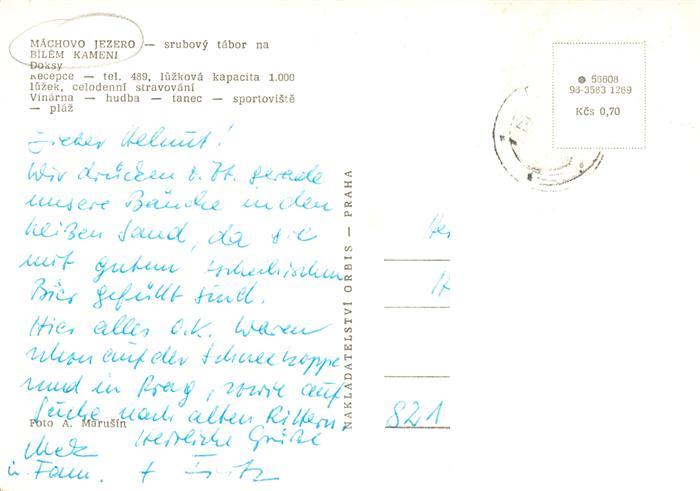 MÁCHOVO JEZERO — srubový tábor na
BÍLÉM KAMENI
Doksy
Recepce — tel. 489, lůžková kapacita 1.000
lůžek, celodenní stravování
Vinárna — hudba — tanec — sportoviště
— pláž
58608
98-3583 1269
Kčs 0,70
Lieber Helmut!
Wir drücken z. Zt. gerade
unsere Bäuche in den
heißen Sand, da sie
mit gutem tschechischen
Bier gefüllt sind.
Hier alles o.k. Waren
schon auf der Schneekoppe
und in Prag, sowie auf
Suche nach alten Rittern.
Herzliche Grüße
u. Fam. + Fritz
Foto A. Marušin
NAKLADATELSTVÍ ORBIS — PRAHA
He
H
821